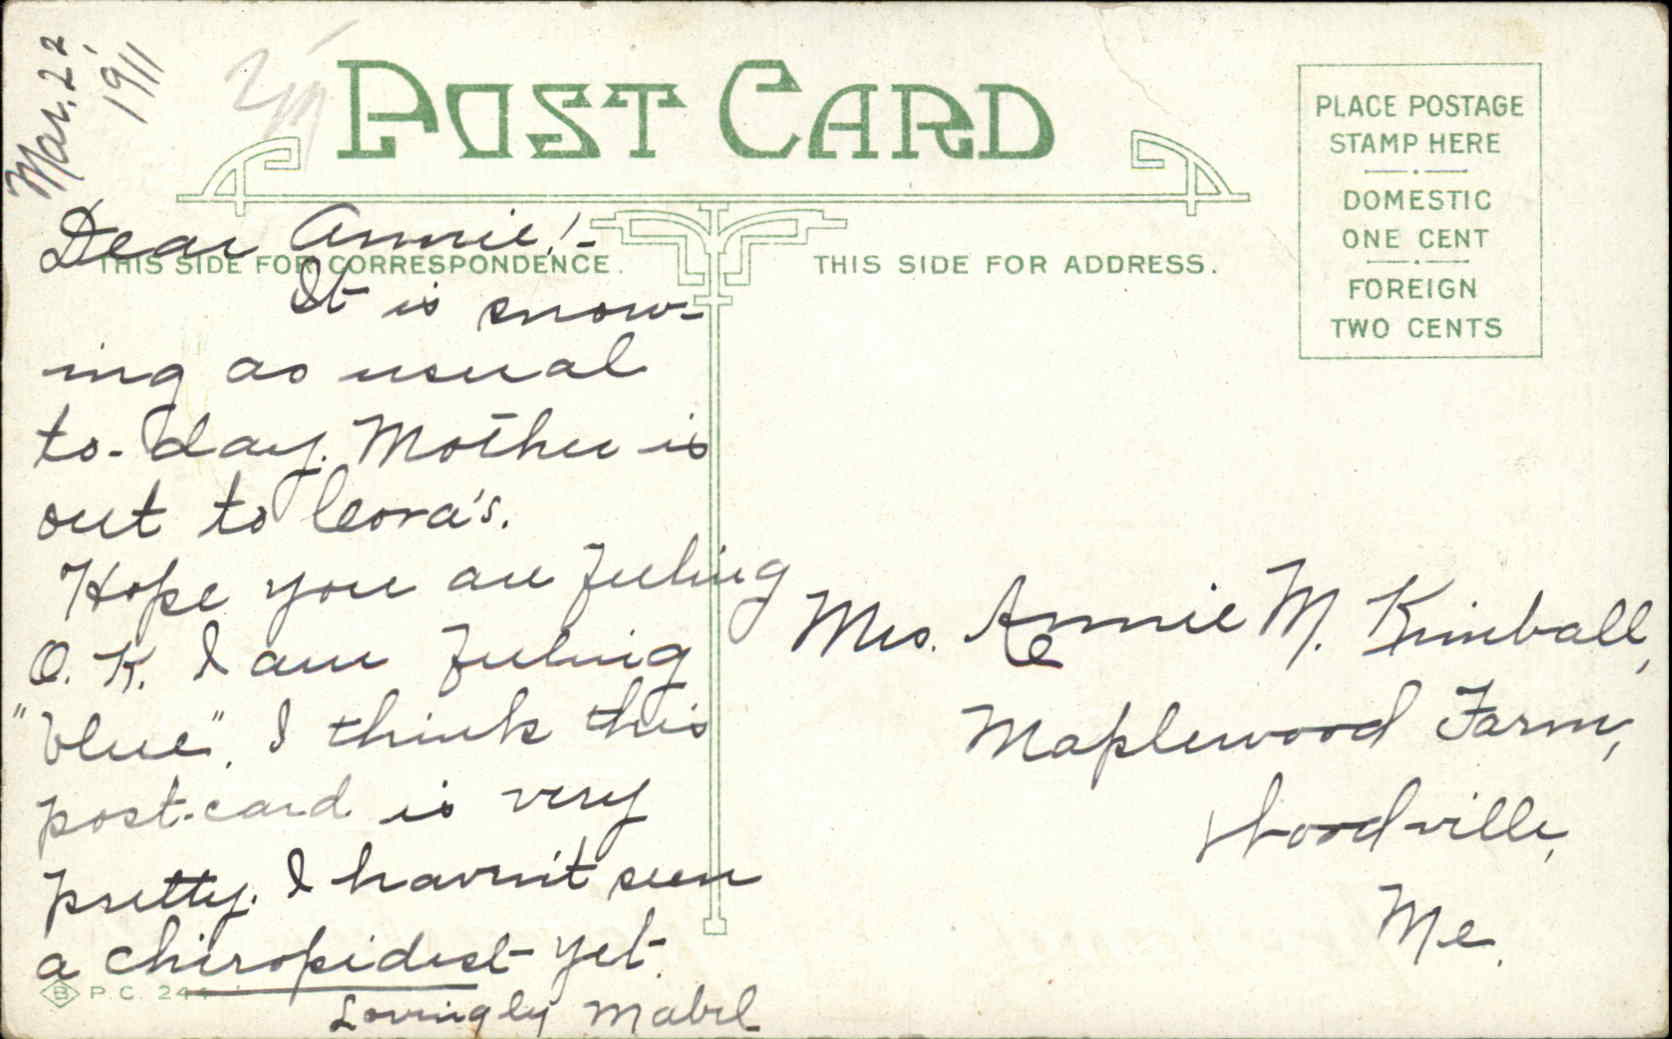 Mar. 22,
1911
POST CARD
PLACE POSTAGE
STAMP HERE
DOMESTIC
ONE CENT
FOREIGN
TWO CENTS
THIS SIDE FOR CORRESPONDENCE.
THIS SIDE FOR ADDRESS.
Dear Annie!-
It is snow-
ing as usual
to-day. Mother is
out to Cora's.
Hope you are feeling
O.K. I am feeling
"blue". I think this
post-card is very
pretty. I havn't seen
a chiropidist yet.
Lovingly Mabel
B P.C. 244
Mrs. Annie M. Kimball,
Maplewood Farm,
Woodville,
Me.